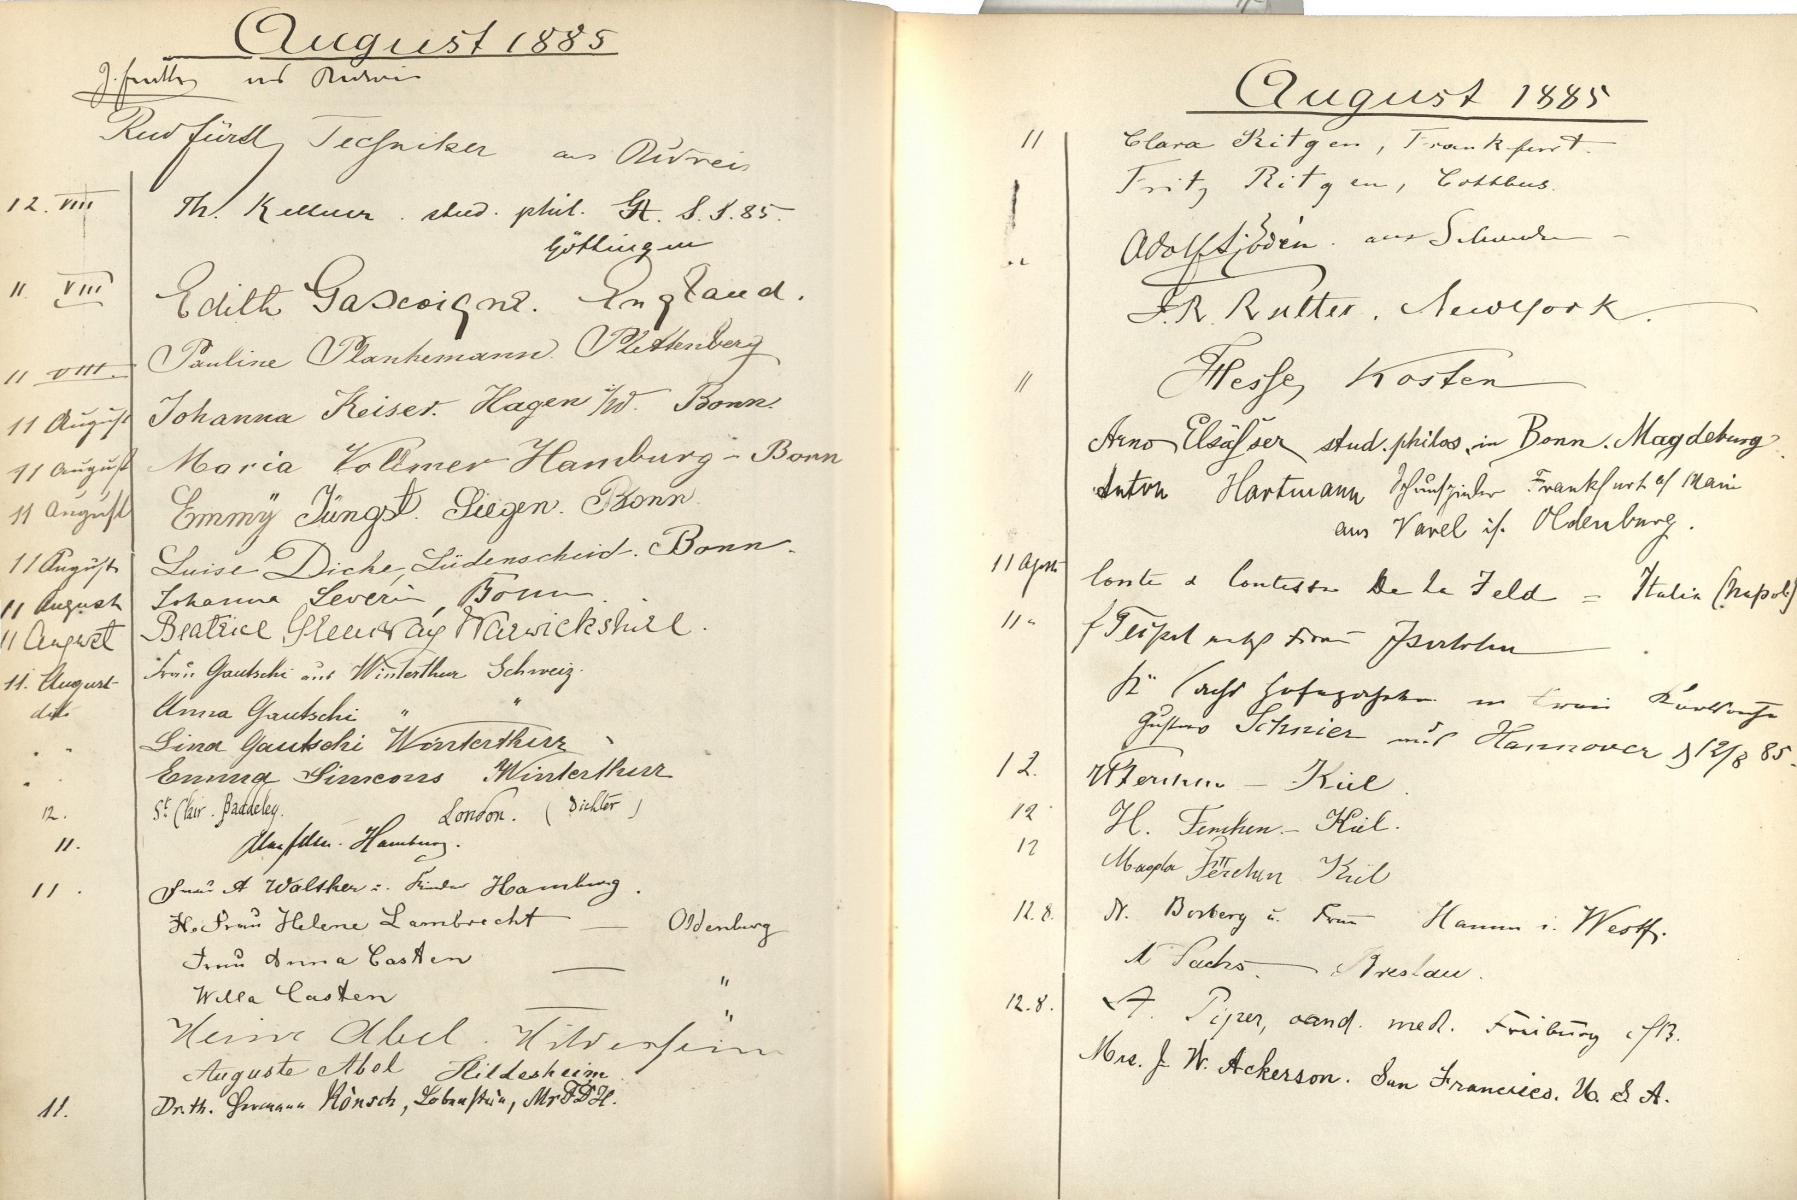 August 1885
Rud Fürth Techniker aus
12. VIII Th. Kellner. stud. phil. Gtt. S. S. 85.
Göttingen
11 VIII Edith Gascoigne. England.
11 VIII Pauline Plankemann Plettenberg
11 August Johanna Keiser. Hagen i/W. Bonn.
11 August Maria Vollmer Hamburg - Bonn
11 August Emmy Jüngst. Siegen. Bonn.
11 August Luise Dicke, Lüdenscheid. Bonn.
11 August Johanna Severin, Bonn.
11 August Beatrice Warwickshire.
11. August Frau Gautschi aus Winterthur Schweiz.
dito Anna Gautschi " "
" " Lina Gautschi Winterthur
" " Emma Simeons Winterthur
12. St Clair. Baddeley. London. (Dichter)
11. Hamburg.
11. Frau A Walther u. Kinder Hamburg.
H. Frau Helene Lambrecht — Oldenburg
Frau Anna Casten — "
Willa Casten "
Abel. Hildesheim
Auguste Abel Hildesheim
11. Dr. th. Hermann Rönsch, Lobenstein, Mr F D H.
August 1885
11 Clara Ritgen, Frankfurt.
" Fritz Ritgen, Cottbus.
" Adolf Sjödén. aus Schweden
F. R. Rutter. New York.
" Hesse, Kosten
Arno Elsässer stud. philos. in Bonn. Magdeburg.
Anton Hartmann Frankfurt a/ Main
aus Varel i/. Oldenburg.
11 Agosto Conte & Contessa De La Feld = Italia (Napoli)
11 " Frau Iserlohn
Frau Karlsruhe
Gustav Schnier aus Hannover d 12/8 85.
12. - Kiel.
12. H. - Kiel.
12 Magda Kiel
12.8. N. Borberg u. Frau Hamm i. Westf.
A Sachs. — Breslau.
12.8. A. Piper, cand. med. Freiburg i/B.
Mrs. J. W. Ackerson. San Francisco. U. S. A.